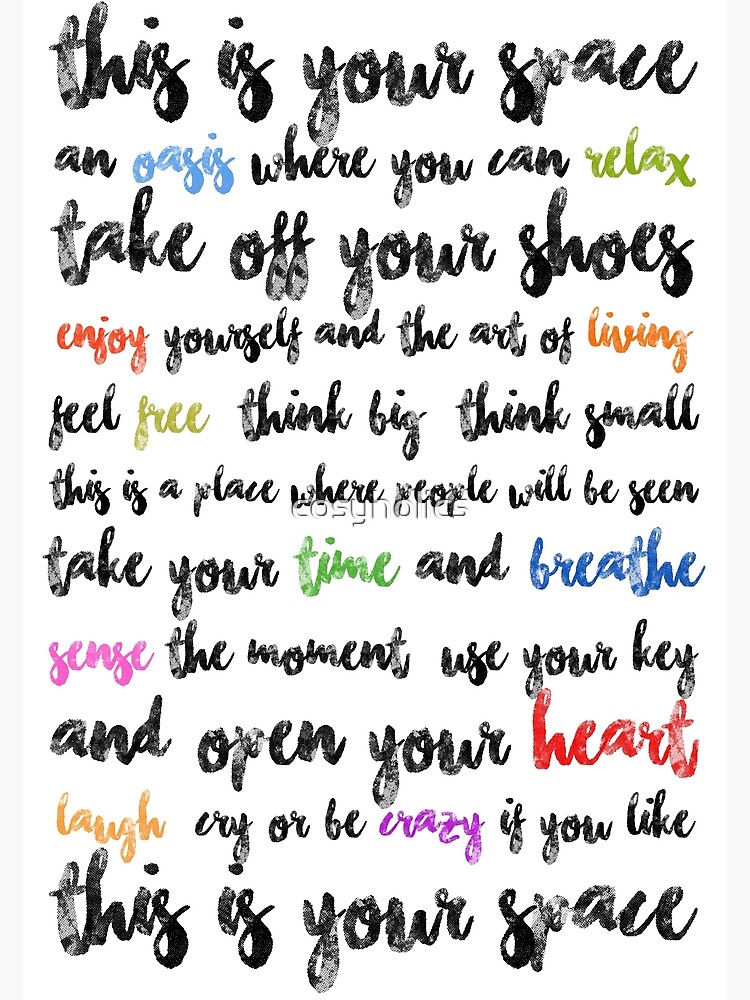 this is your space
an oasis where you can relax
take off your shoes
enjoy yourself and the art of living
feel free think big think small
this is a place where people will be seen
cosyholics
take your time and breathe
sense the moment use your key
and open your heart
laugh cry or be crazy if you like
this is your space